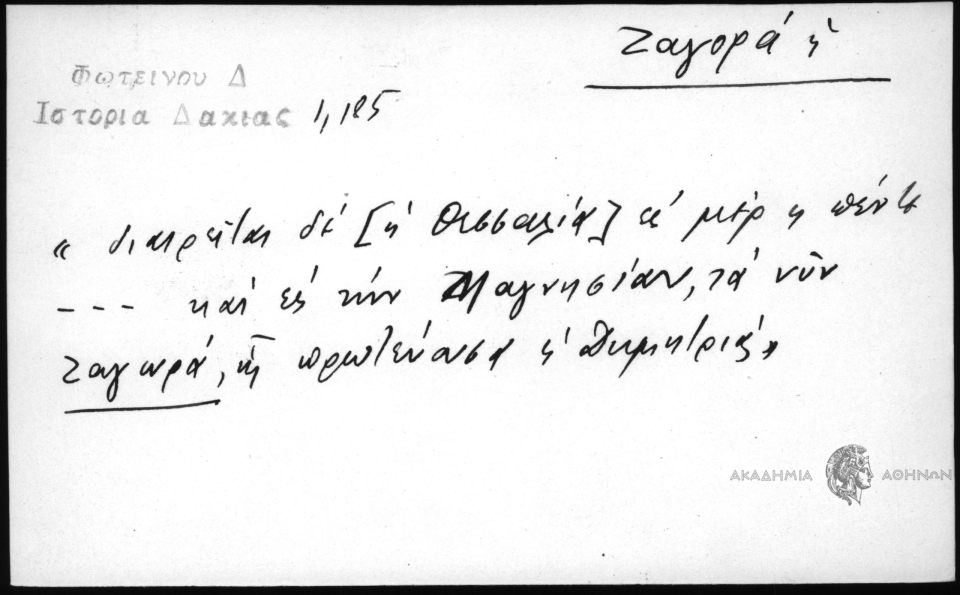 Ζαγορά ἡ
Φωτεινου Δ
Ιστορια Δακιας 1,185
« διαιρεῖται δέ [ἡ Θεσσαλία] εἰς μέρη πέντε
--- καί εἰς τήν Μαγνησίαν, τά νῦν
Ζαγωρά, ἧς πρωτεύουσα ἡ Δημητριάς»
ΑΚΑΔΗΜΙΑ ΑΘΗΝΩΝ